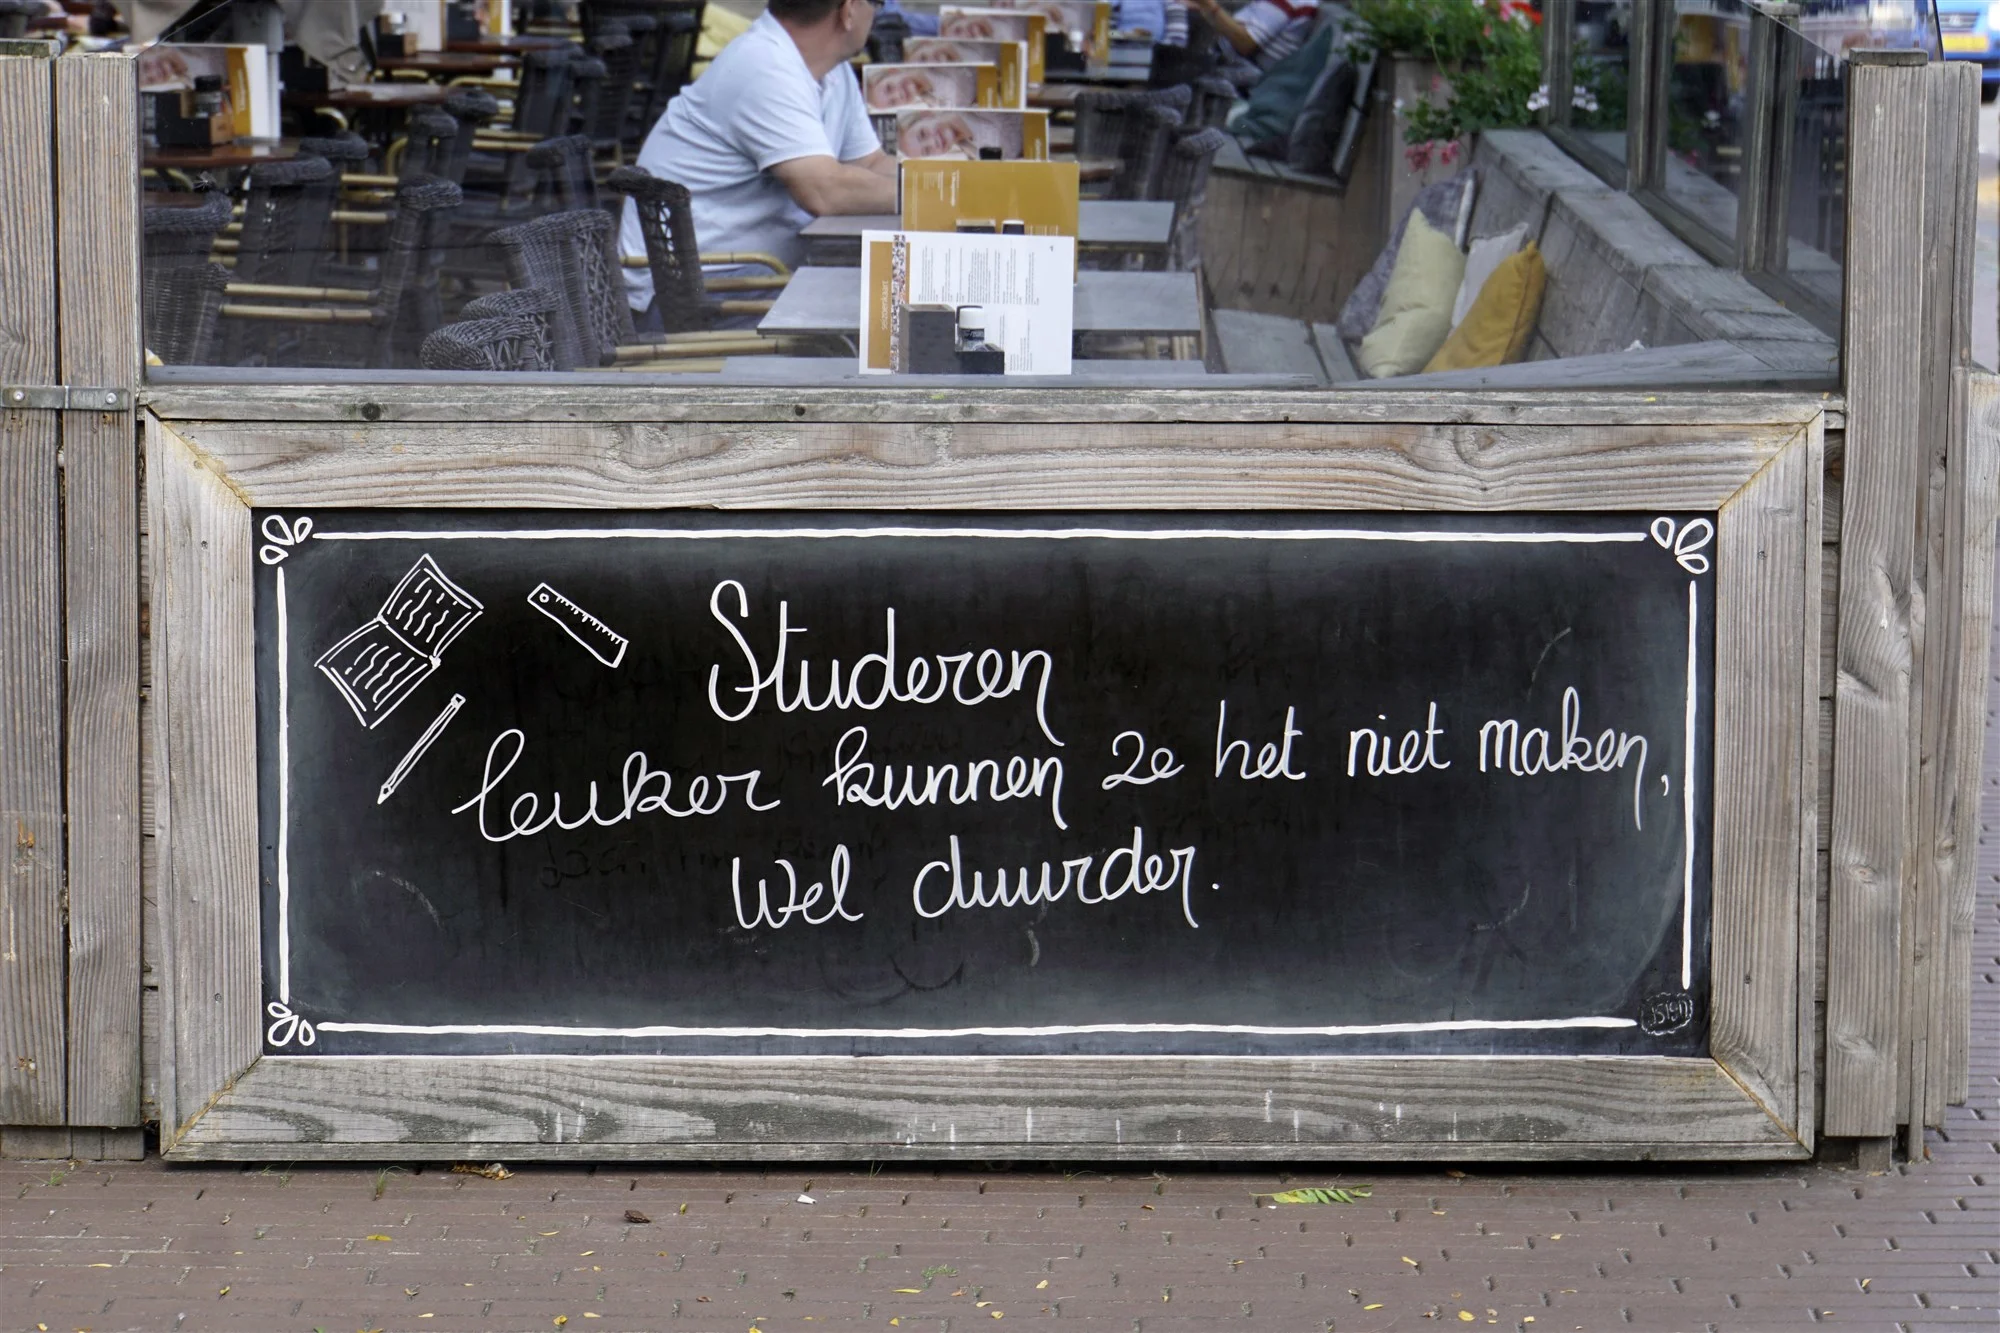 Studeren
leuker kunnen ze het niet maken,
wel duurder.
isign
seizoenkaart